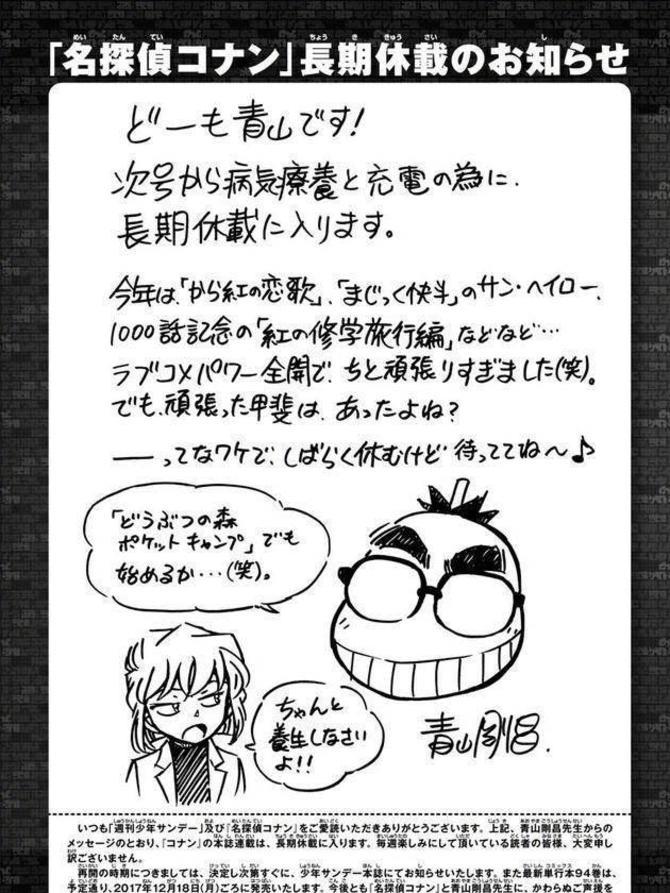 「名探偵コナン」長期休載のお知らせ
どーも青山です!
次号から病気療養と充電の為に、
長期休載に入ります。
今年は、「から紅の恋歌」、「まじっく快斗」のサン・ヘイロー、
1000話記念の「紅の修学旅行編」などなど…
ラブコメパワー全開で、ちと頑張りすぎました(笑)。
でも、頑張った甲斐は、あったよね?
──ってなワケで、しばらく休むけど 待っててね〜♪
「どうぶつの森
ポケットキャンプ」でも
始めるか…(笑)。
ちゃんと
養生しなさい
よ!!
青山剛昌.
いつも「週刊少年サンデー」及び『名探偵コナン』をご愛読いただきありがとうございます。上記、青山剛昌先生からの
メッセージのとおり、『コナン』の本誌連載は、長期休載に入ります。毎週楽しみにして頂いている読者の皆様、大変申し
訳ございません。
再開の時期につきましては、決定し次第すぐに、少年サンデー本誌にてお知らせいたします。また最新単行本94巻は、
予定通り、2017年12月18日(月)ごろに発売いたします。今後とも『名探偵コナン』と青山剛昌先生に、かわらぬご声援を